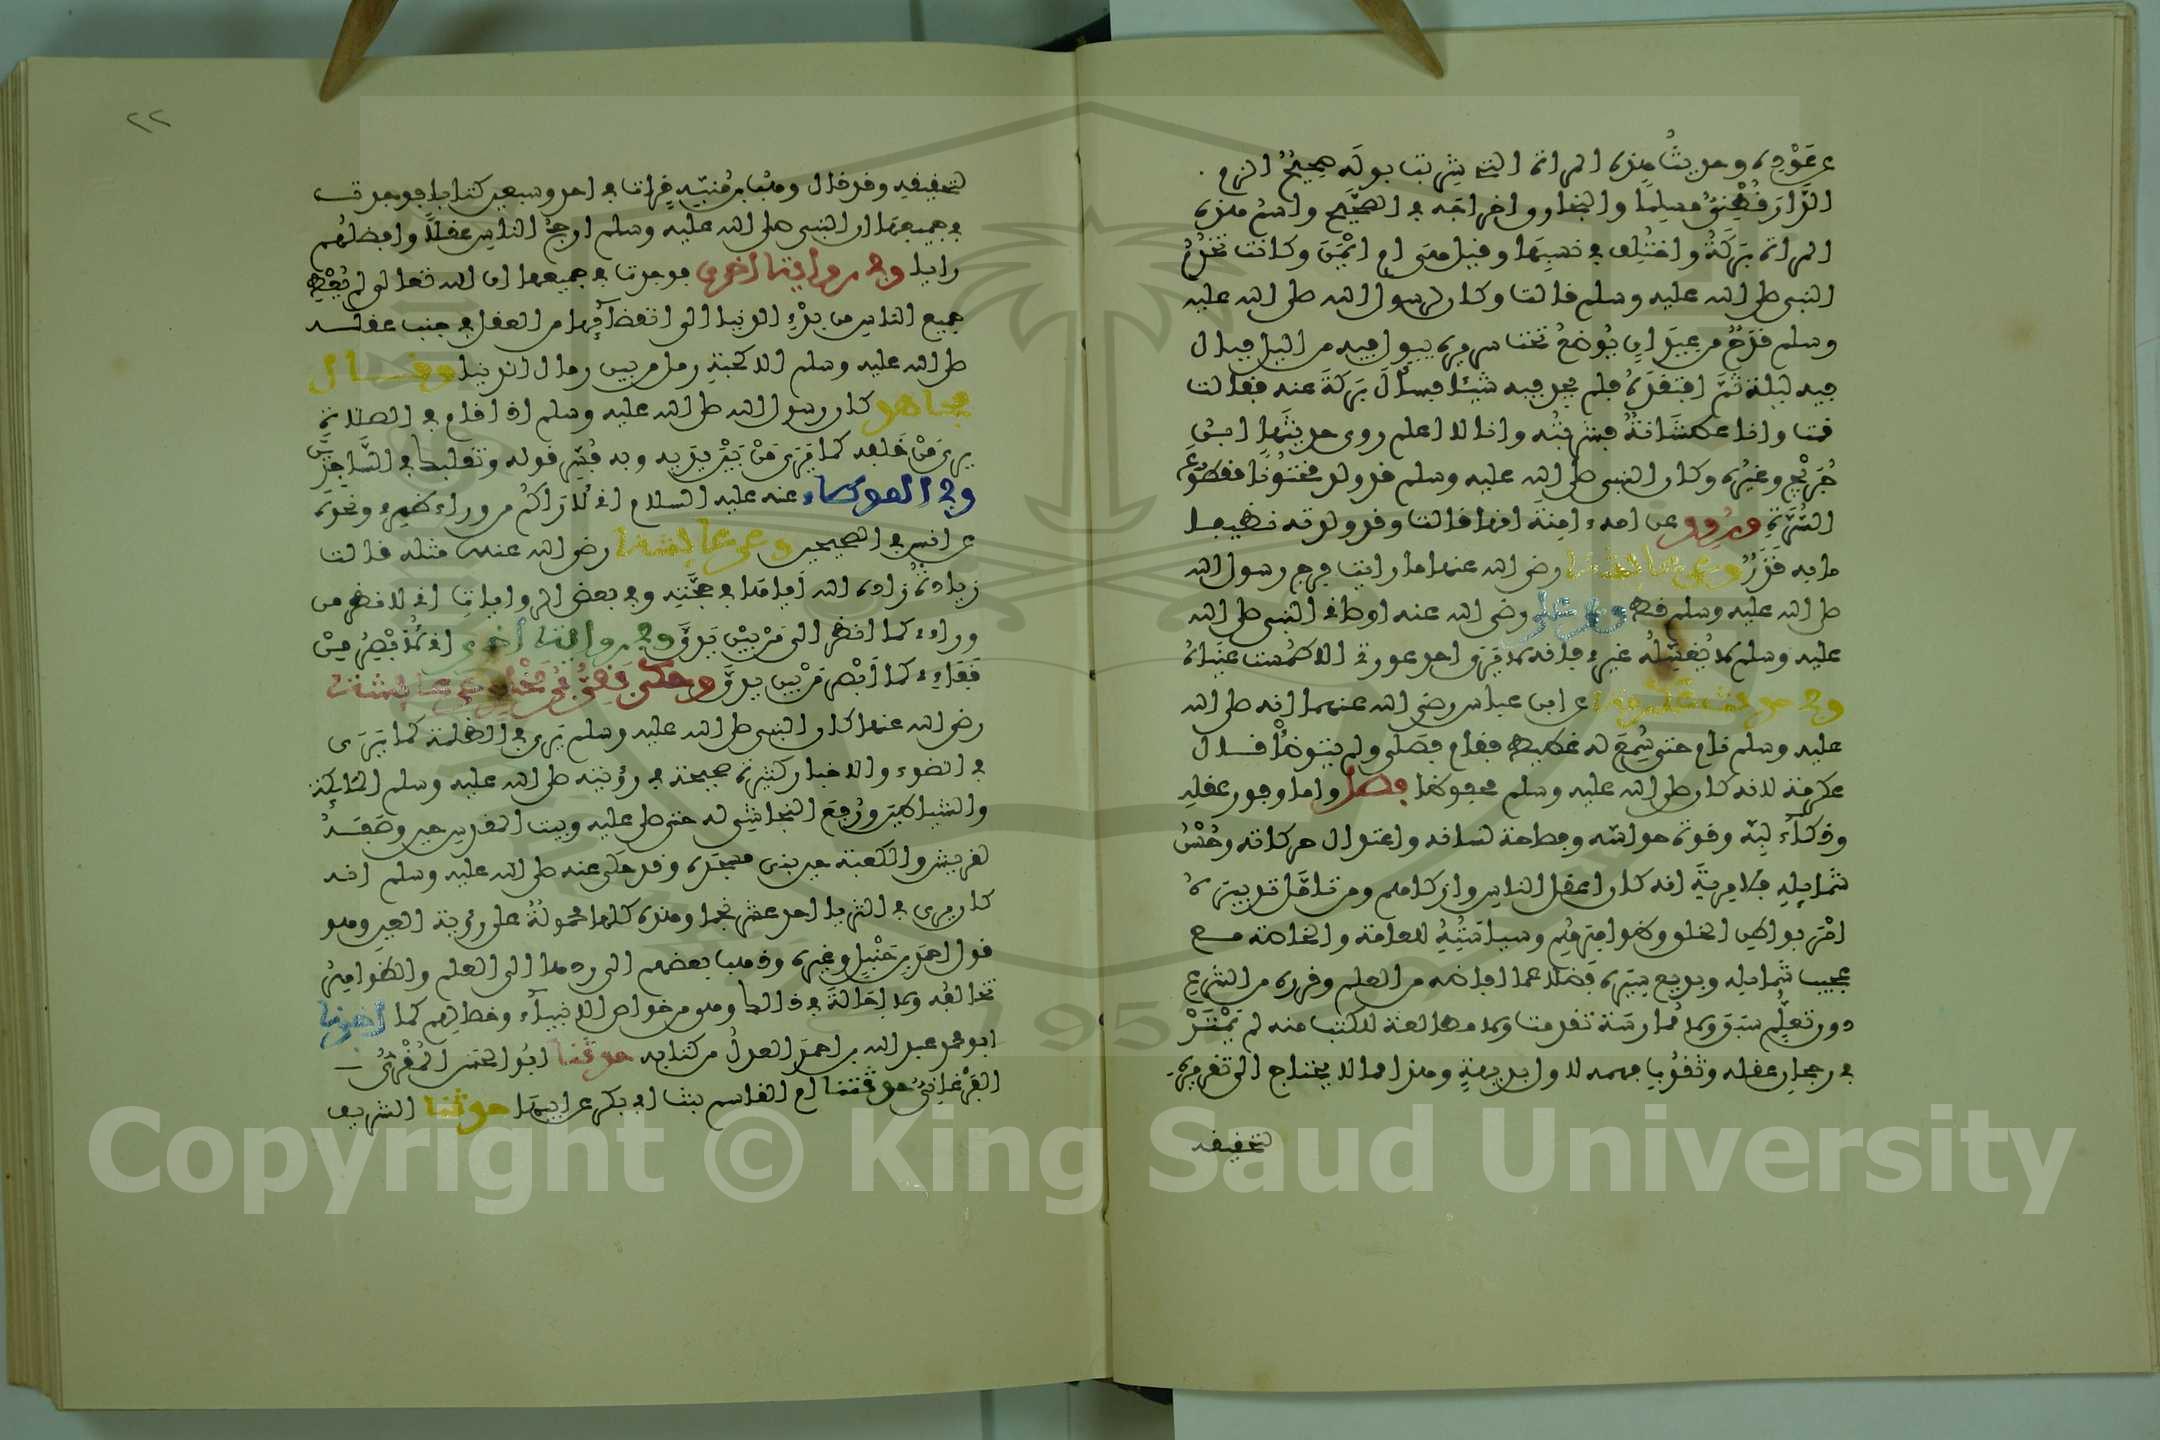 عن عَوْدِه وحديث هذه المراة التي شربت بوله صحيح الزم
الدَّارَقُطْنِيُّ مسلما والبخاري اخراجه في الصحيح واسم هذه
المراة بَرَكَةُ واختُلِف في نسبها وقيل هي ام ايمن وكانت تخدُمُ
النبي صلى الله عليه وسلم قالت وكان لرسول الله صلى الله عليه
وسلم قَدَحٌ من عيدان يُوضَعُ تحت سريره يبول فيه من الليل فبال
فيه ليلة ثمَّ افتقده فلم يجد فيه شيئا فسأل بَرَكَةَ عنه فقالت
قمت وانا عطشانة فشربته وانا لا اعلم روى حديثها ابن
جُرَيْج وغيره وكان النبي صلى الله عليه وسلم قد ولد مختونًا مقطوع
السُّرَّة ورُوِي عن امه ءامنة انها قالت وقد ولدته نظيفا
ما به قَذَرٌ وعن عائشة رضي الله عنها ما رايت فرج رسول الله
صلى الله عليه وسلم قط وعن علي رضي الله عنه اوصاني النبي صلى الله
عليه وسلم لا يُغَسِّلُه غيري فانه لا يَرَى احد عورتي الا طُمِست عَيْنَاهُ
وفي حديث عكرمة عن ابن عباس رضي الله عنهما انه صلى الله
عليه وسلم نام حتى سُمِعَ له غطيط فقام فصلى ولم يتوضأ قال
عكرمة لانه كان صلى الله عليه وسلم محفوظا فصل واما وفور عقلِه
وذكاء لُبِّه وقوة حواسّه وفصاحة لسانه واعتدال حركاته وحُسْنُ
شمايِلِه فلا مِرْيةَ انه كان اعقل الناس واذكاهم ومن تامَّل تدبيرَهُ
امْرَ بواطِنِ الخلق وظواهِرهم وسياسَتِه للعامة والخاصة مع
عجيب شمايله وبديع سِيَرِه فضلا عما افاضه من العلم وقرره من الشرع
دون تعلُّم سَبَق ولا مُمارسَة تقدمت ولا مطالعة للكتب منه لم يَمْتَرْ
في رجحان عقله وثقُوب فهمه لاول بديهة وهذا مما لا يحتاج الى تقريره
لتحقيقه
٢٢
لتحقيقه وقد قال وهب بن مُنَبِّه قرات في احد وسبعين كتابا فوجدت
في جميعها ان النبي صلى الله عليه وسلم ارجحُ الناسِ عقلاً وافضلهُم
رايا وفي رواية اخرى فوجدت في جميعها ان الله تعالى لم يُعْطِ
جميع الناس من بَدْءِ الدنيا الى انقضائِها من العقل في جنب عقله
صلى الله عليه وسلم الا كحبةِ رمل من بين رمال الدنيا وقال
مجاهد كان رسول الله صلى الله عليه وسلم اذا قام في الصلاة
يرى مَن خَلفه كما يَرَى مَنْ بَيْنَ يَدَيه وبه فُسِّر قوله وتقلبك في السَّاجِدِين
وفي الموطاء عنه عليه السلام اني لَأراكُم من وراء ظهري ونحوُه
عن انس في الصحيحين وعن عايشة رضي الله عنها مثله قالت
زيادةٌ زاده الله اياها في حُجَّتِه وفي بعض الروايات اني لانظر من
وراءي كما انظر الى مَنْ بَيْن يَدَيَّ وفي رواية اخرى اني لأُبْصِرُ مِنْ
قَفَاي كما أُبْصِر مَن بين يدَيَّ وحكى بَقِيُّ بْنُ مَخْلَدٍ عن عايشة
رضى الله عنها كان النبي صلى الله عليه وسلم يَرَى في الظلمة كما يَرَى
في الضوء والاخبار كثيرة صحيحة في رؤيته صلى الله عليه وسلم الملائكة
والشياطين ورُفِعَ النجاشِي له حتى صلى عليه وبيت المقدس حين وصَفَهُ
لقريش والكعبة حين بنى مسجده وقد حكى عنه صلى الله عليه وسلم انه
كان يرى في الثريا احد عشر نجما وهذه كلها محمولةٌ على رؤية العين وهو
قول احمد بن حَنْبَلٍ وغيره وذهب بعضهم الى ردها الى العلم والظواهِرُ
تخالفُه ولا إحالةَ في ذالك وهي من خواص الانبياء وخصالِهِم كما اخبرنا
ابو محمد عبد الله بن احمد العدلُ من كتابه حدثنا ابُو الحسن المُقْرِئُ
الفَرْغانِيُّ حدثتنا ام القاسم بنت ابي بكر عن ابيها حدثنا الشريف
Copyright © King Saud University
1957